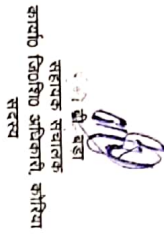 सहायक संचालक
कार्या0 जि0शि0 अधिकारी, कोरिया
सदस्य